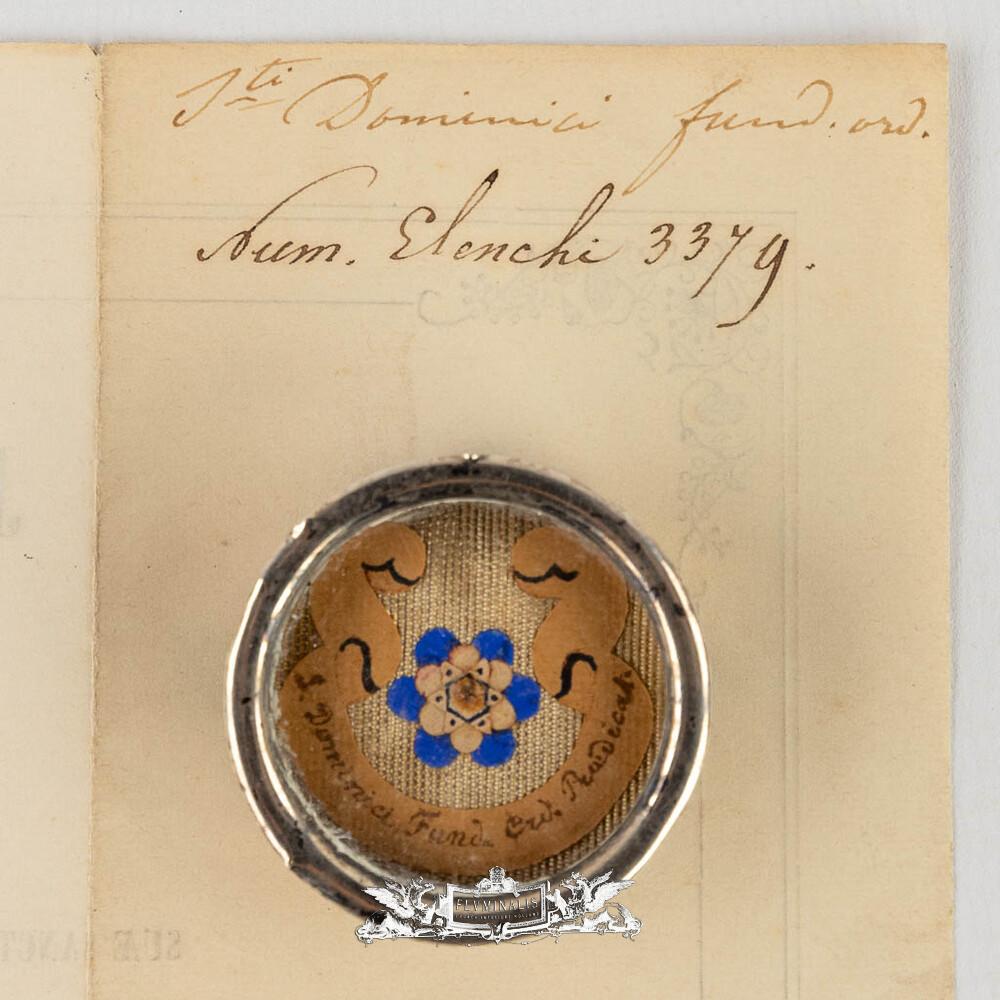 Sti Dominici fund. ord.
Num. Elenchi 3379.
S. Dominici Fund. Ord. Praedicat.
ELVMINALIS
SUÆ SANCT